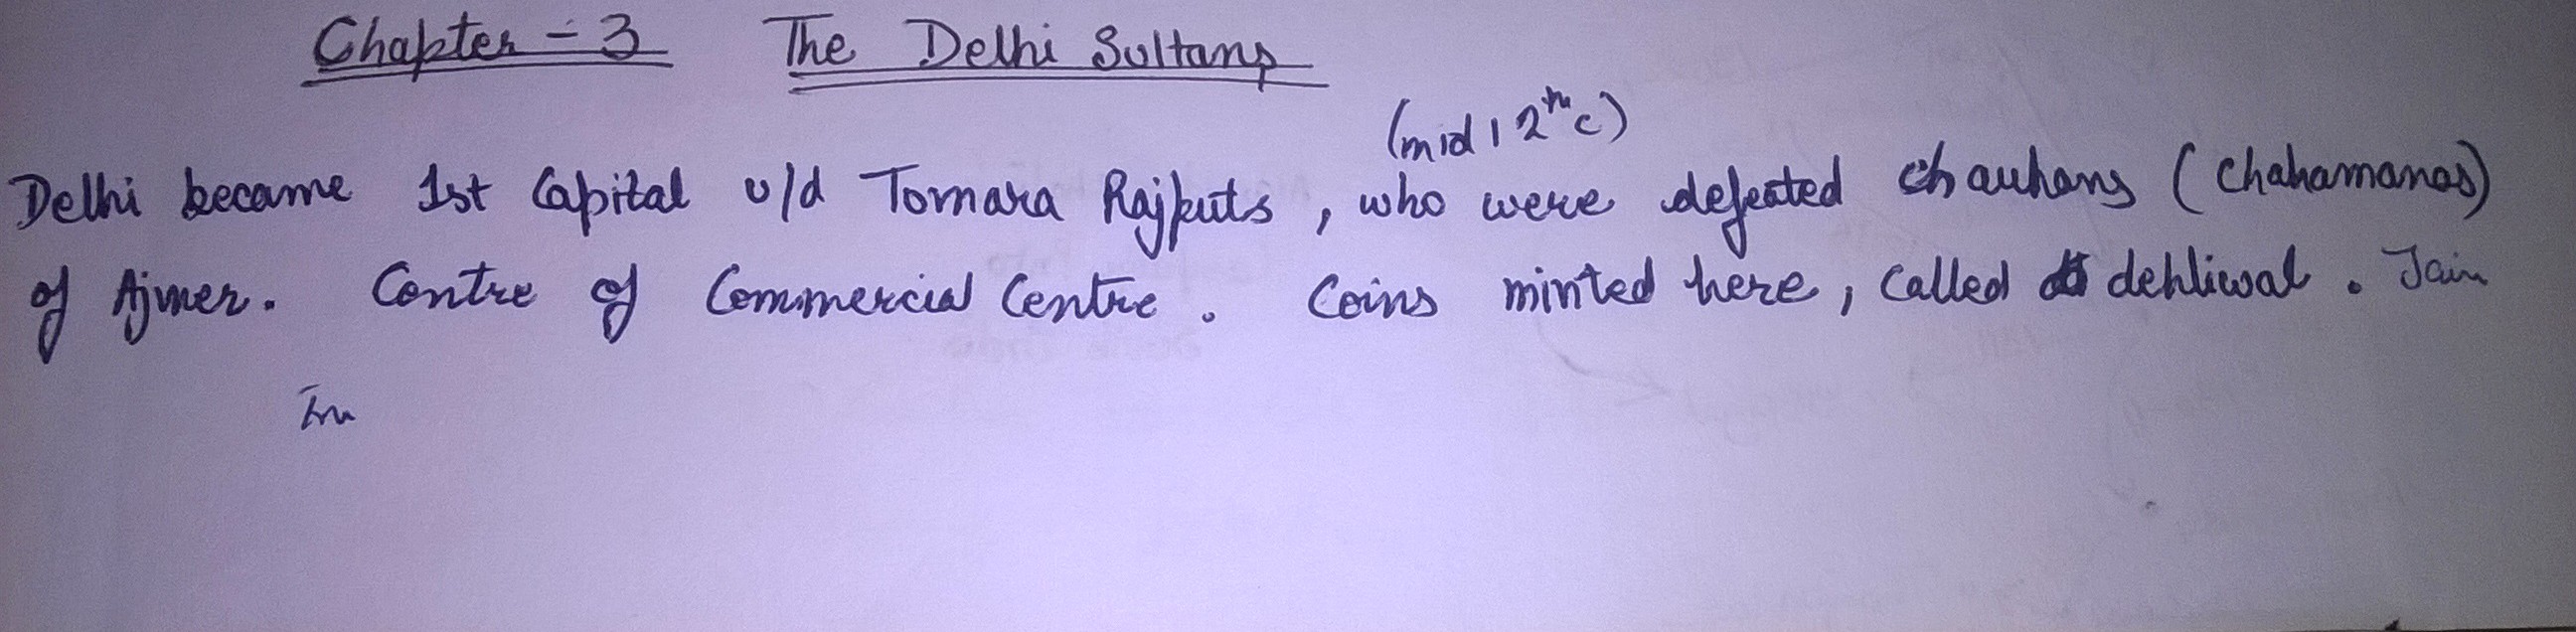 Chapter - 3 The Delhi Sultans
(mid 12th c)
Delhi became 1st Capital u/d Tomara Rajputs, who were defeated chauhans (Chahamanas)
of Ajmer. Centre of Commercial Centre. Coins minted here, called dehliwal. Jain